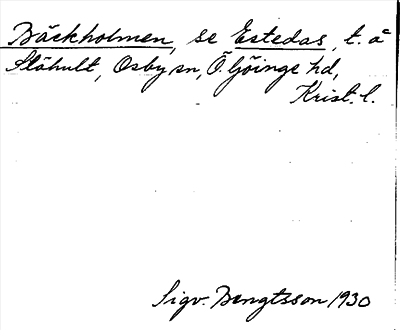 Bäckholmen, se Estedas, t. å
Slähult, Osby sn, Ö. Göinge hd,
Krist. l.
Sigv. Bengtsson 1930